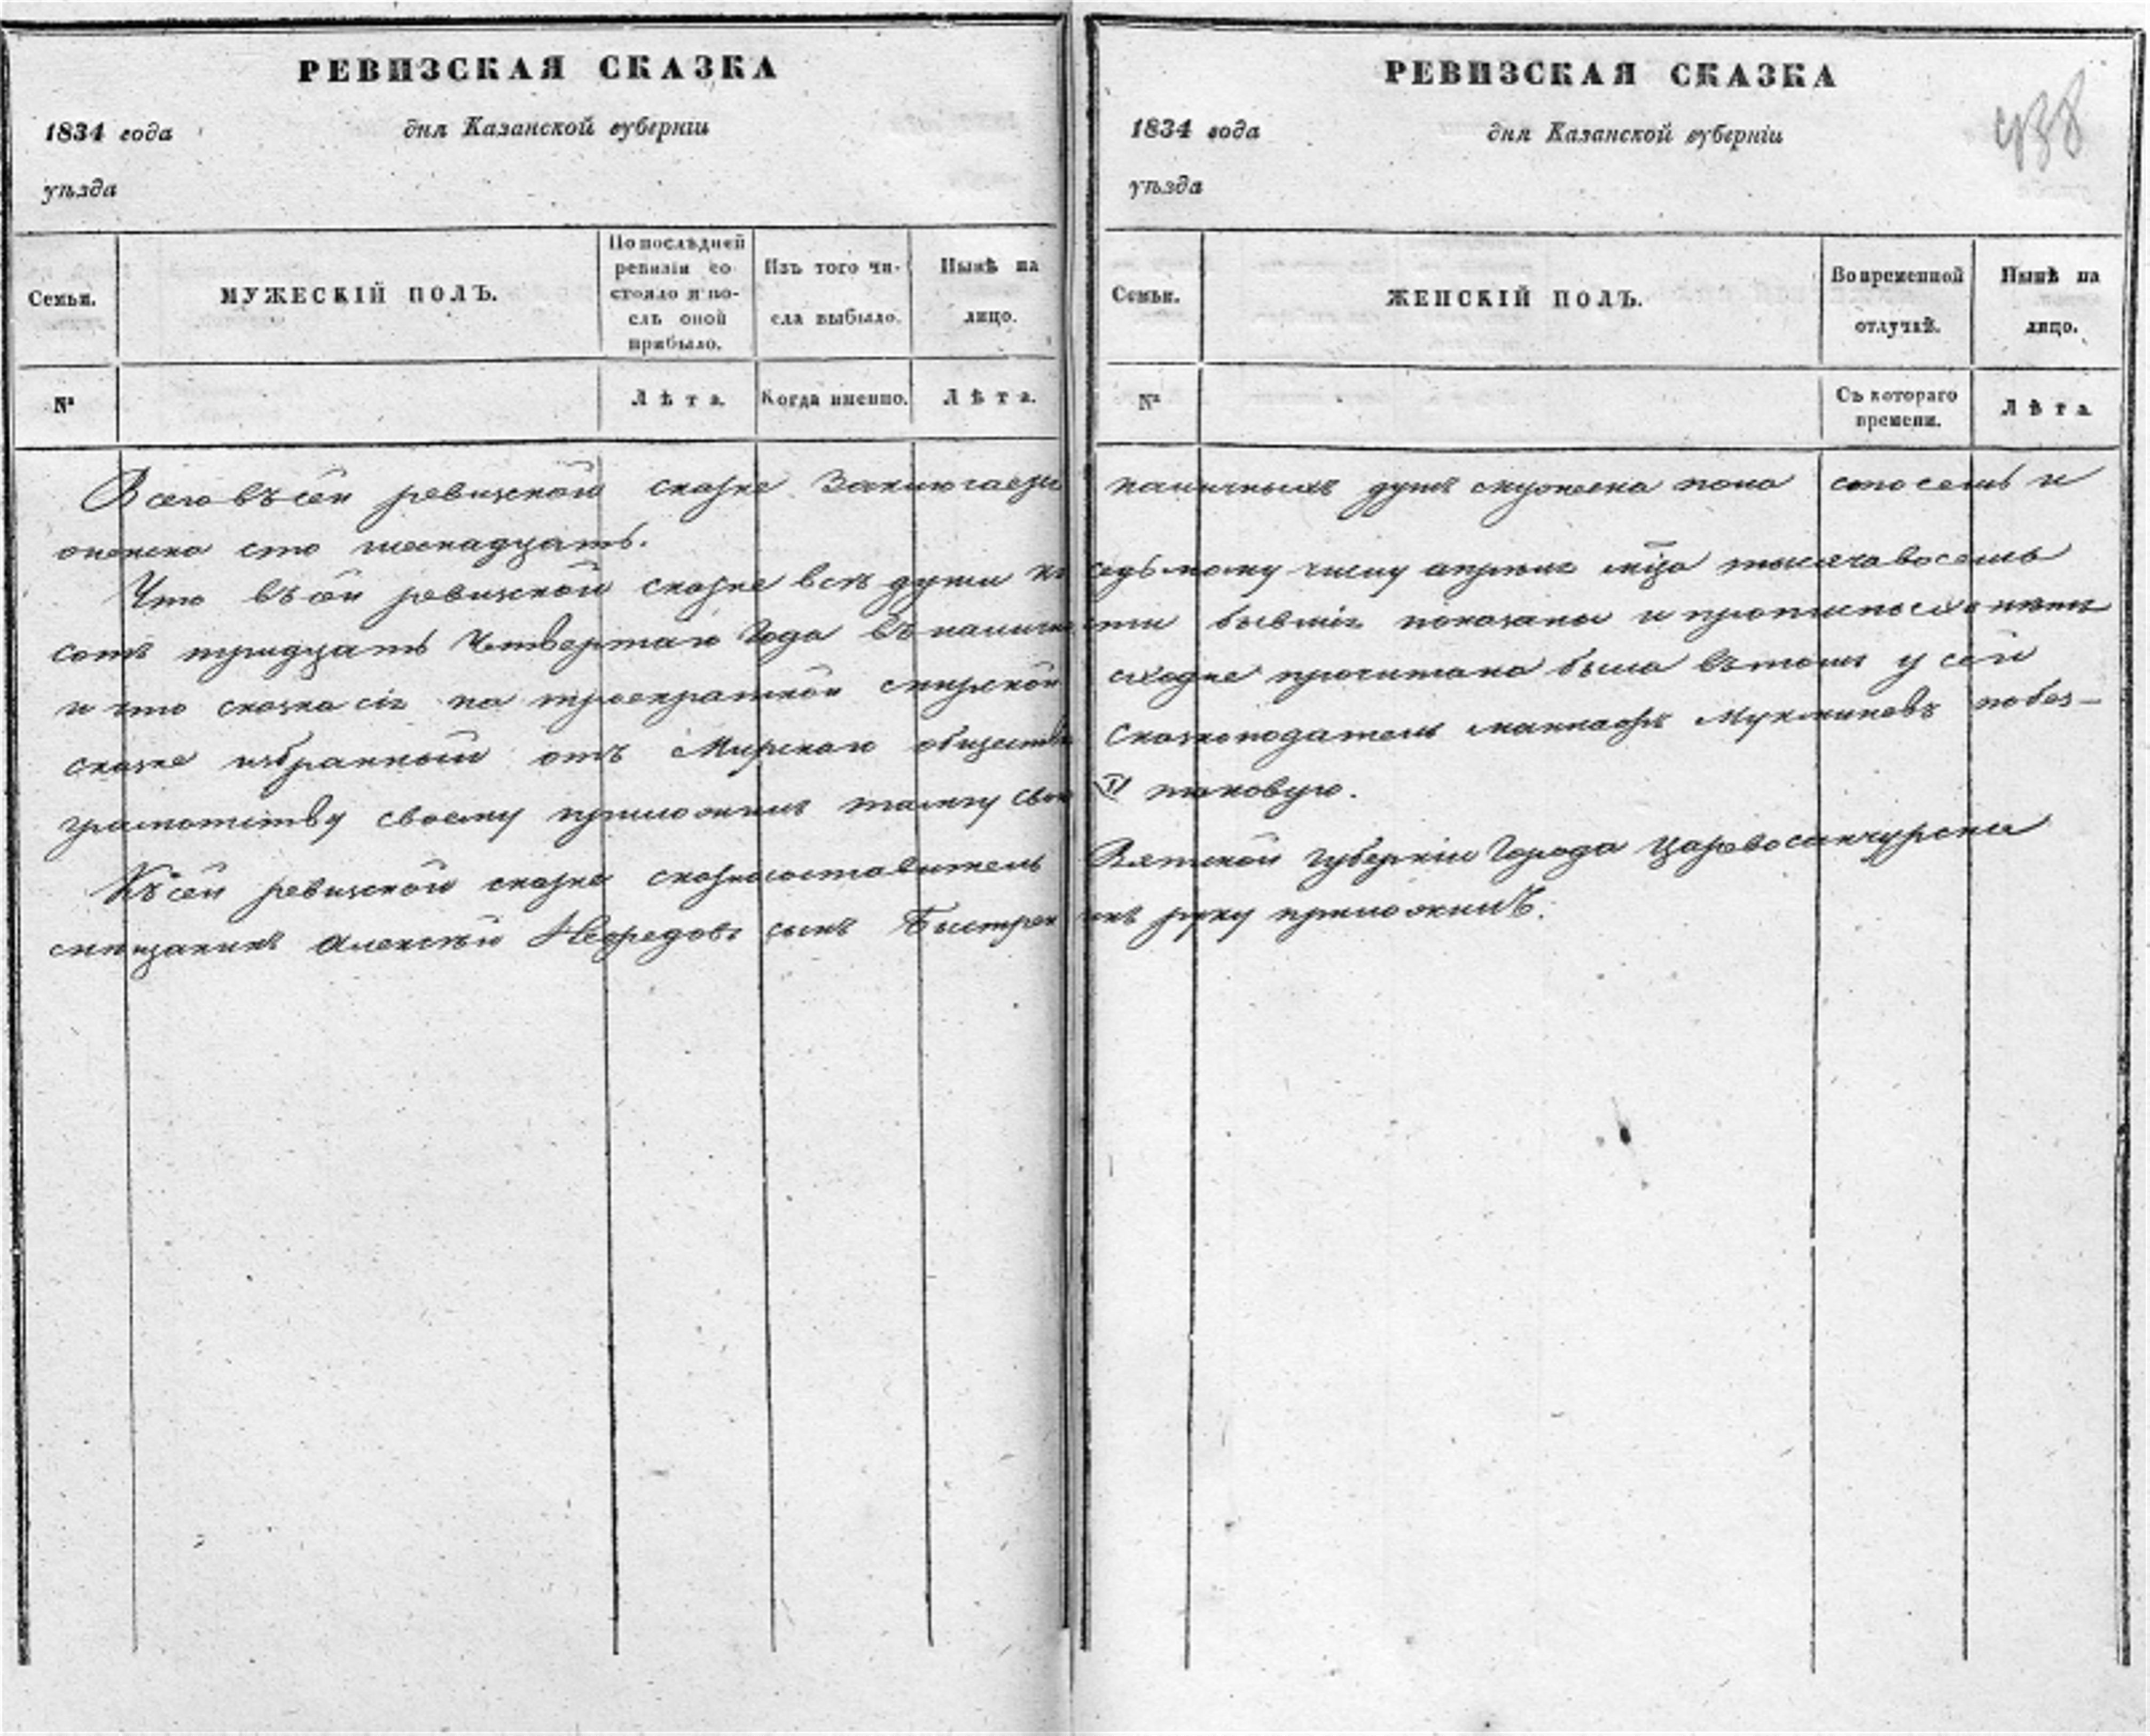 РЕВИЗСКАЯ СКАЗКА
1834 года дня Казанской губернiи
уѣзда
Семьи.
МУЖЕСКIЙ ПОЛЪ.
По послѣдней
ревизiи со-
стояло и по-
слѣ оной
прибыло.
Изъ того чи-
сла выбыло.
Нынѣ на
лицо.
№
Лѣта.
Когда именно.
Лѣта.
РЕВИЗСКАЯ СКАЗКА
438
1834 года дня Казанской губернiи
уѣзда
Семьи.
ЖЕНСКIЙ ПОЛЪ.
Во временной
отлучкѣ.
Нынѣ на
лицо.
№
Съ котораго
времени.
Лѣта
Всего въ сей ревизской сказке Заключаетца наличныхъ душъ мужеска пола сто семь и
женска сто шеснадцать.
Что въ сей ревизской сказке всѣ души къ седьмому числу апреля мца тысяча восемь
сотъ тридцать Четвертаго Года въ наличности бывшiя показаны и прописныхъ нѣтъ
и что сказка сiя на троекратной мирской сходке прочитана была въ томъ у сей
сказке избранный отъ Мирскаго общества сказкоподатель Мукминевъ по без-
грамотству своему приложилъ тамгу свою таковую.
Къ сей ревизской сказке сказкосоставитель Вятской губернiи Города Царевосанчурска
мищанинъ Алексѣй Нефедовъ сынъ Быстренинъ руку приложилъ.